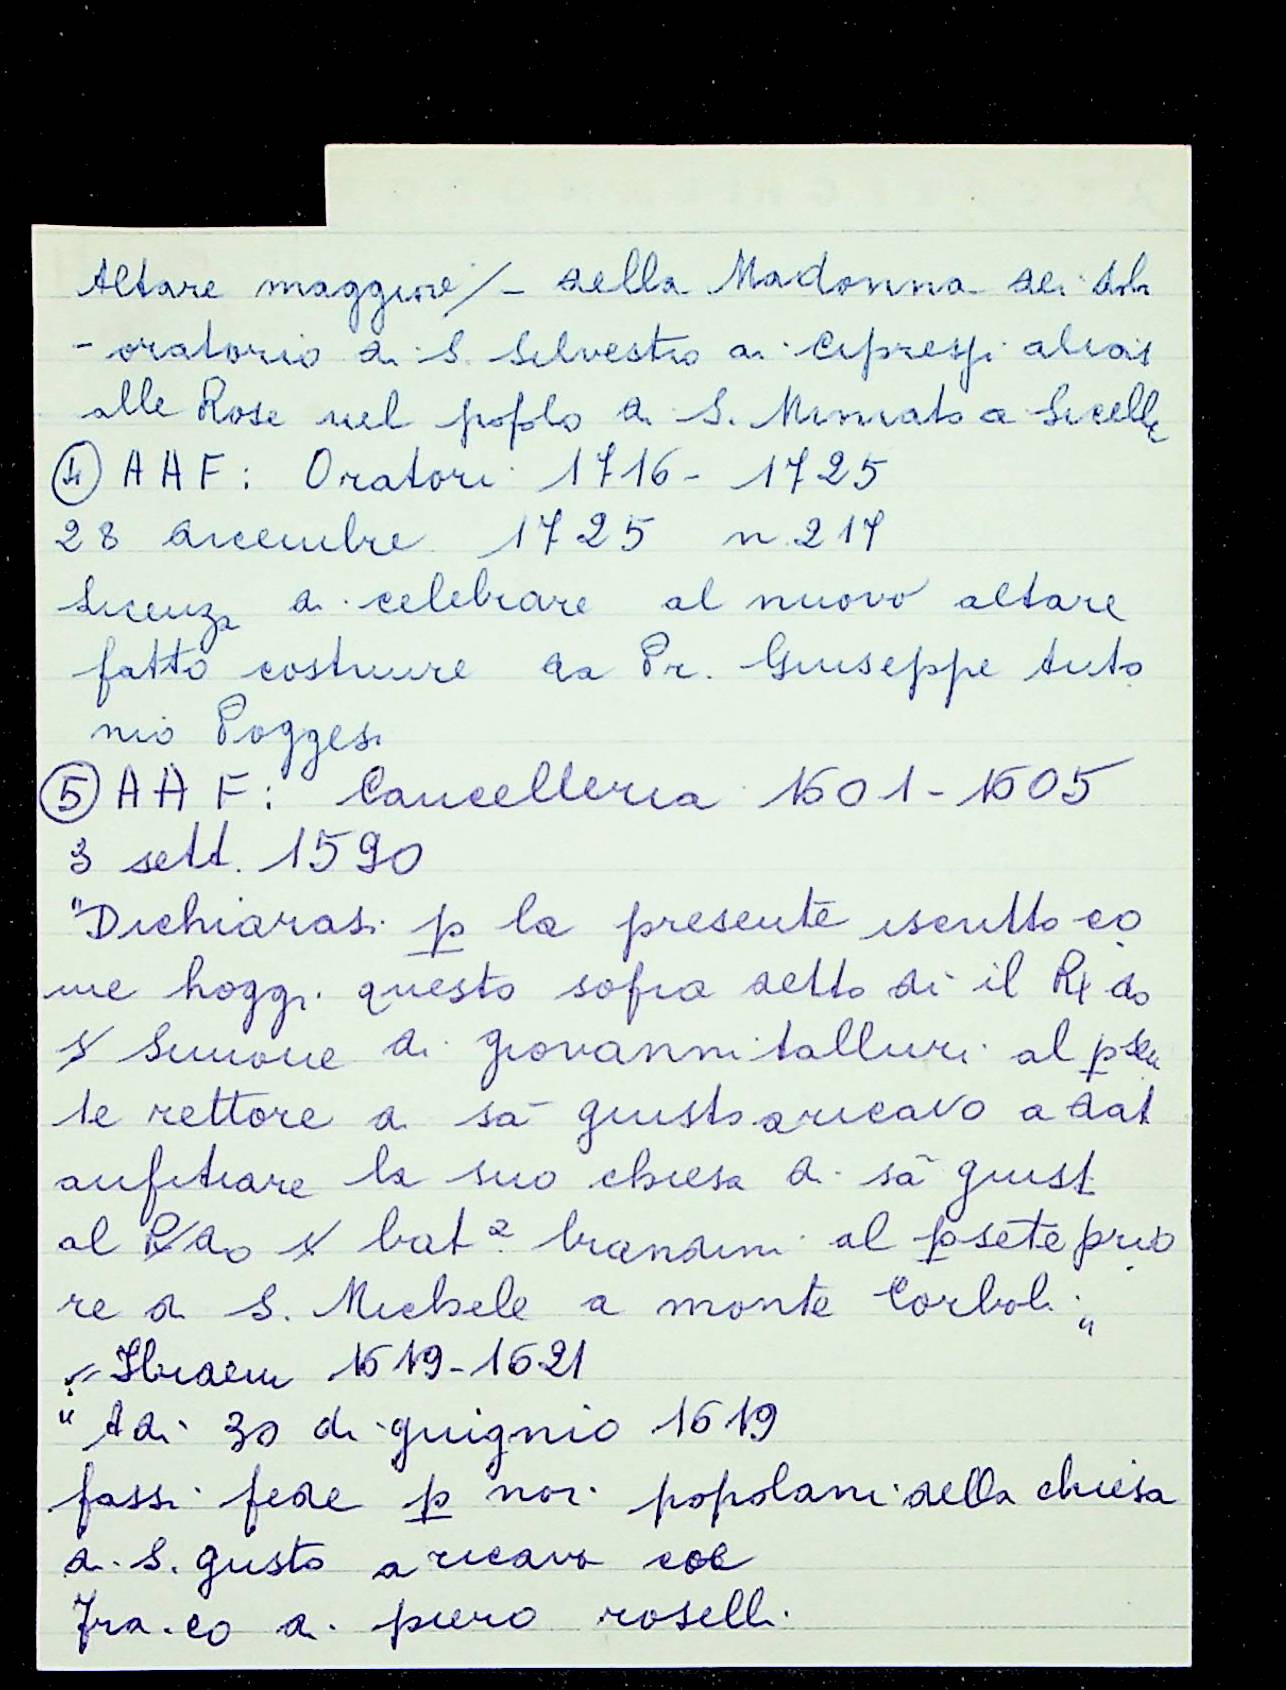 Altare maggiore/- della Madonna dei
- oratorio di S. Silvestro ai Cipressi alias
alle Rose nel popolo di S. Miniato a Sicelle
④ AAF: Oratori 1716 - 1725
28 dicembre 1725 n. 217
Licenza di celebrare al nuovo altare
fatto costruire da Pr. Giuseppe Anto
nio Poggesi
⑤ AAF: Cancelleria 1601 - 1605
3 sett. 1590
"Dichiarasi p la presente iscritto co
me hoggi questo sopra detto dì il R do
Simone di giovanni talluri al psen
te rettore di sã giusto a ricavo a dat
anfitiare la suo chiesa di sã giust
al R do bat.a brandini al psẽte prio
re di S. Michele a monte Corboli;"
Ibidem 1619-1621
"Adi 30 di guignio 1619
fassi fede p noi popolani della chiesa
di S. gusto a ricavo coe
Fra.co di piero roselli